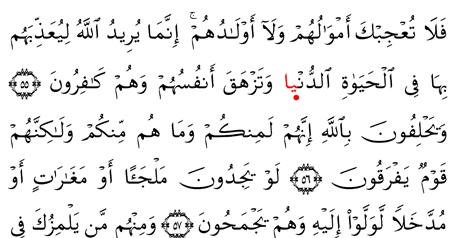 فَلَا تُعْجِبْكَ أَمْوَٰلُهُمْ وَلَآ أَوْلَـٰدُهُمْ ۚ إِنَّمَا يُرِيدُ ٱللَّهُ لِيُعَذِّبَهُم
بِهَا فِى ٱلْحَيَوٰةِ ٱلدُّنْيَا وَتَزْهَقَ أَنفُسُهُمْ وَهُمْ كَـٰفِرُونَ ﴿٥٥﴾
وَيَحْلِفُونَ بِٱللَّهِ إِنَّهُمْ لَمِنكُمْ وَمَا هُم مِّنكُمْ وَلَـٰكِنَّهُمْ
قَوْمٌ يَفْرَقُونَ ﴿٥٦﴾ لَوْ يَجِدُونَ مَلْجَـًٔا أَوْ مَغَـٰرَٰتٍ أَوْ
مُدَّخَلًا لَّوَلَّوْا۟ إِلَيْهِ وَهُمْ يَجْمَحُونَ ﴿٥٧﴾ وَمِنْهُم مَّن يَلْمِزُكَ فِى